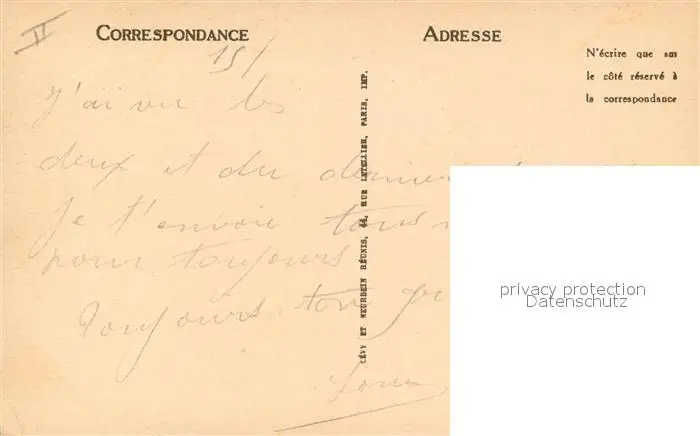 II
CORRESPONDANCE
ADRESSE
N'écrire que sur
le côté réservé à
la correspondance
15/
J'ai vu les
deux et du dernier
Je t'envoie tous
pour toujours
Toujours ton
LÉVY ET NEURDEIN RÉUNIS, 44, RUE LETELLIER, PARIS, IMP.
privacy protection
Datenschutz